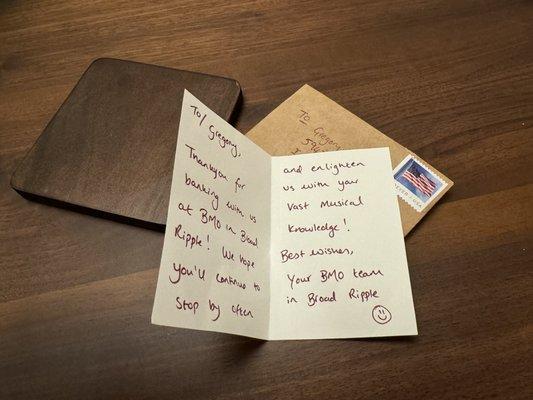 To/ Gregory,
Thankyou for
banking with us
at BMO in Broad
Ripple! We hope
you'll continue to
stop by often
and enlighten
us with your
vast musical
knowledge!
Best wishes,
Your BMO team
in Broad Ripple
To Gregory